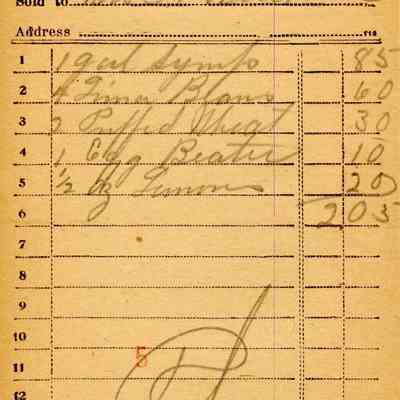 Sold to
Address
1 1 gal Syrup 85
2 4 Lima Beans 60
3 2 Puffed Wheat 30
4 1 Egg Beater 10
5 1/2 dz Lemons 20
6 2 05
7
8
9
10
5
11
12